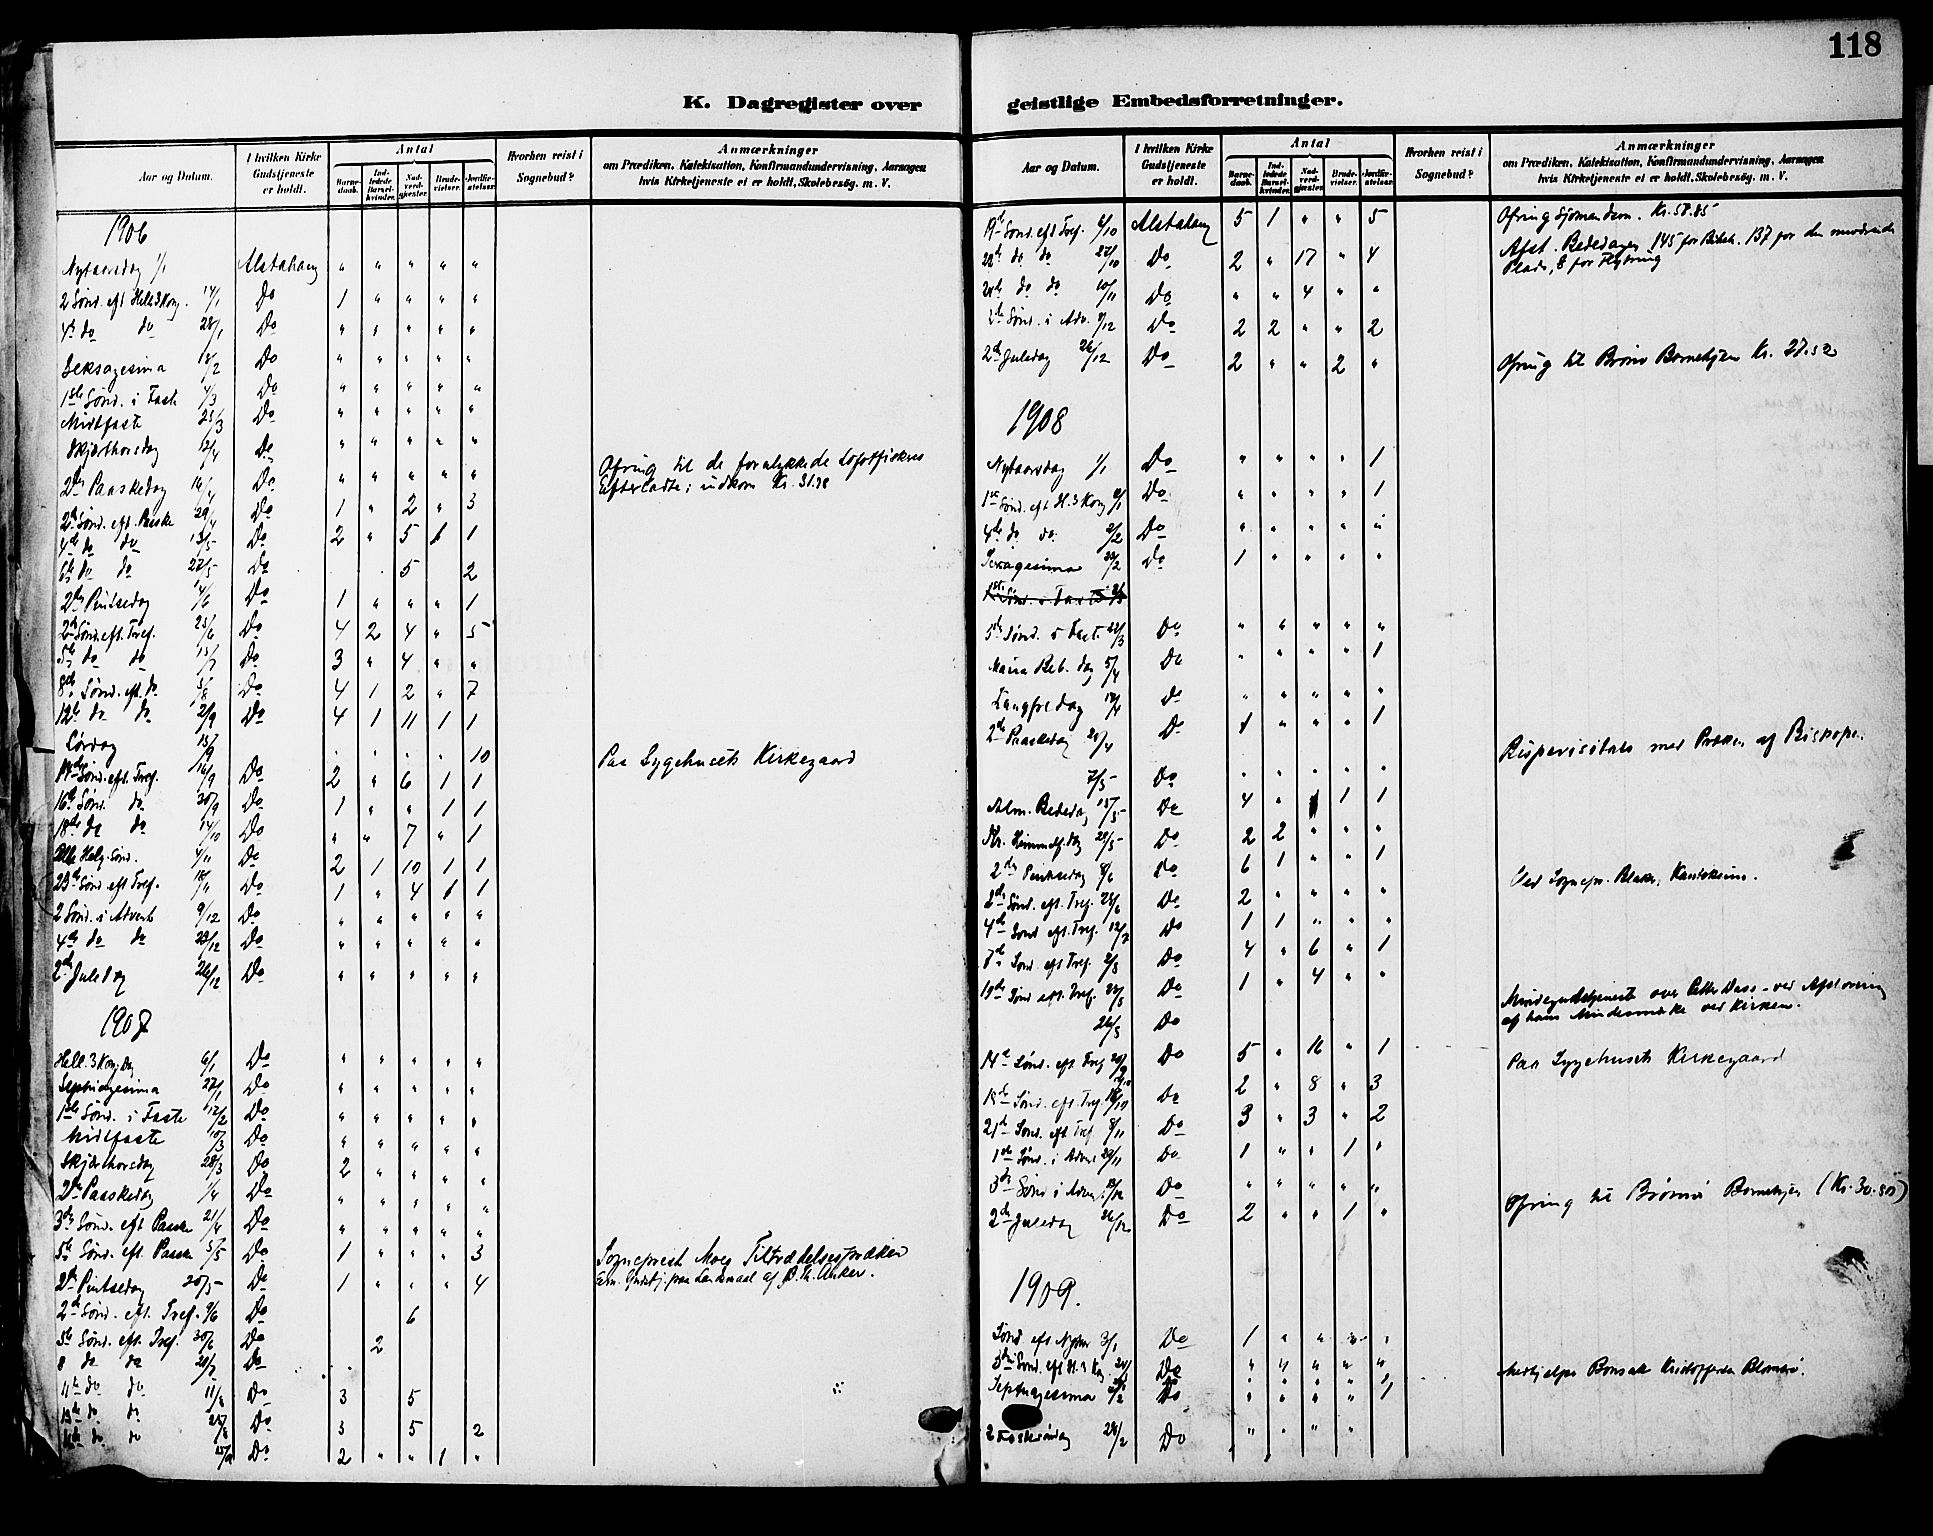 118
K. Dagregister over geistlige Embedsforretninger.
Aar og Datum. | I hvilken Kirke Gudstjeneste er holdt. | Antal | Hvorhen reist i Sognebud? | Anmærkninger om Prædiken, Katekisation, Konfirmandundervisning, Aarsagen hvis Kirketjeneste ei er holdt, Skolebesøg. m. V.
Barnedaab. | Indledede Barselkvinder. | Nadverdgjester. | Brudevielser. | Jordfæstelser.
1906
Nytaarsdag 1/1 Alstahaug " " " " "
2 Sønd. eft Hell 3 Kong. 14/1 Do 1 " " " "
4de do do 28/1 Do " " " " "
Seksagesima 18/2 Do " " " " "
1ste Sønd. i Faste 4/3 Do " " " " "
Midfaste 25/3 Do " " " " "
Skjærthorsdag 12/4 Do " " " " "
2den Paaskedag 16/4 Do " " " " " Ofring til de forulykkede Lofotfiskeres
Efterladte; indkom Kr. 31.98
2den Sønd. eft. Paaske 29/4 Do 1 " 2 " 3
4de do do 13/5 Do 2 " 5 1 1
6te do do 27/5 Do 5 2
2den Pintsedag 4/6 Do 1 " " " 1
2den Sønd. eft. Tref. Do 4 2 4 " 5
5te do do 15/7 Do 3 " 4 " "
8de Sønd. eft. do 5/8 Do 4 1 2 " 7
12te do do 2/9 Do 4 1 11 1 1
Lørdag 15/9 " " " " 10 Paa Sygehusets Kirkegaard
14de Sønd. eft. Tref. 16/9 Do 2 " 6 1 1
16de Sønd. do 30/9 Do 1 " " 1 1
18de do do 14/10 Do " " 7 " 1
Alle Helg. Sønd. 4/11 Do 2 1 10 1 1
23de Sønd eft Tref. 18/11 Do 1 " 4 1 1
2 Sønd. i Advent 9/12 Do " " " " "
4de do do 23/12 Do " " " " "
2den Juledag 26/12 Do " " " " "
1907
Hell. 3 Kong. Dag 6/1 Do " " " " "
Septuagesima 27/1 Do " " " " "
1ste Sønd. i Faste /2 Do " " " " "
Midfaste 10/3 Do " " " " "
Skjærthorsdag 28/3 Do 2 " " " "
2den Paaskedag 1/4 Do " " " " "
3die Sønd. eft Paaske 21/4 Do " " " " "
5te Sønd. eft. Paaske 5/5 Do 1 " " " 3 Sogneprest Moes Tiltrædelsesprædiken
2den Pintsedag 20/5 Do 1 " " " 4 paa Landsmaal af
2den Sønd. eft. Tref. 9/6 Do 6
5te Sønd. eft. Tref. 30/6 Do 2
8 do do Do
11te do do 11/8 Do 3 5
do do Do 3 5 2
do do Do 2 " " 1 "
19de Sønd. eft Tref. 6/10 Alstahaug 5 1 " " 5 Ofring Sjømandsm. Kr. 58.85
22de do do 27/10 Do 2 " 17 " 4 Afst. Bededagen 145 for Bibeh. 137 for den nuværende
Plads, 8 for Flytning
24de do do 10/11 Do " " 4 " "
2den Sønd. i Adv. 8/12 Do 2 2 " " 2
2den Juledag 26/12 Do 2 " " 2 " Ofring til Brønø Bornehjem Kr. 27.52
1908
Nytaarsdag 1/1 Do " " " " 1
1ste Sønd. eft H. 3 Kong Do " " " " 1
4de do do 2/2 Do " " " " "
Sexagesima 23/2 Do 1 " " " "
1ste Sønd. i Faste
Sønd. i Fast. 22/3 Do " " " " "
Maria Beb. dag 5/4 Do " " " " 1
Langfredag 17/4 Do " " " " "
2den Paaskedag 20/4 Do 1 " " " 1
7/5 Do " " " " " Bispevisitats med Præken af Biskopen.
Alm. Bededag 15/5 Do 4 " 1 1
Kr. Himmelf. dag 28/5 Do 2 2 " " "
2den Pintsedag 8/6 Do 6 1 " " 1
2den Sønd. eft. Tref. 28/6 Do 2 " " " " Ved Sognepr. Kautokeino.
4de Sønd eft. Tref. 12/7 Do 1 1 " " "
7de Sønd eft Tref. 2/8 Do 4 " 6 " 1
10de Sønd eft. Tref. 23/8 Do 1 " 4 " "
26/8 Do Mindegudstjeneste over Petter Dass – ved Afsløring
af hans Mindesmærke ved Kirken.
14de Sønd. eft. Tref 20/9 Do 5 " 16 " 1 Paa Sygehusets Kirkegaard
18de Sønd. eft. Tref. 18/10 Do 2 " 8 " 3
21de Sønd. eft Tref 8/11 Do 3 " 3 " 2
1ste Sønd. i Advent 29/11 Do 1 " " 1 "
3die Sønd i Advent 13/12 Do " " " " "
2den Juledag 26/12 Do 2 " " 1 " Ofring til Brønnø Bornehjem (Kr. 30.80)
1909.
Sønd. eft Nytaar 3/1 Do 1 " " " "
3die Sønd. eft H. 3 Kong 24/1 Do " " " " " Medhjelper Bonsak Kristoffersen
Septuagesima /2 Do " " " " 1
2 Fastesøndag 28/2 Do " " " "